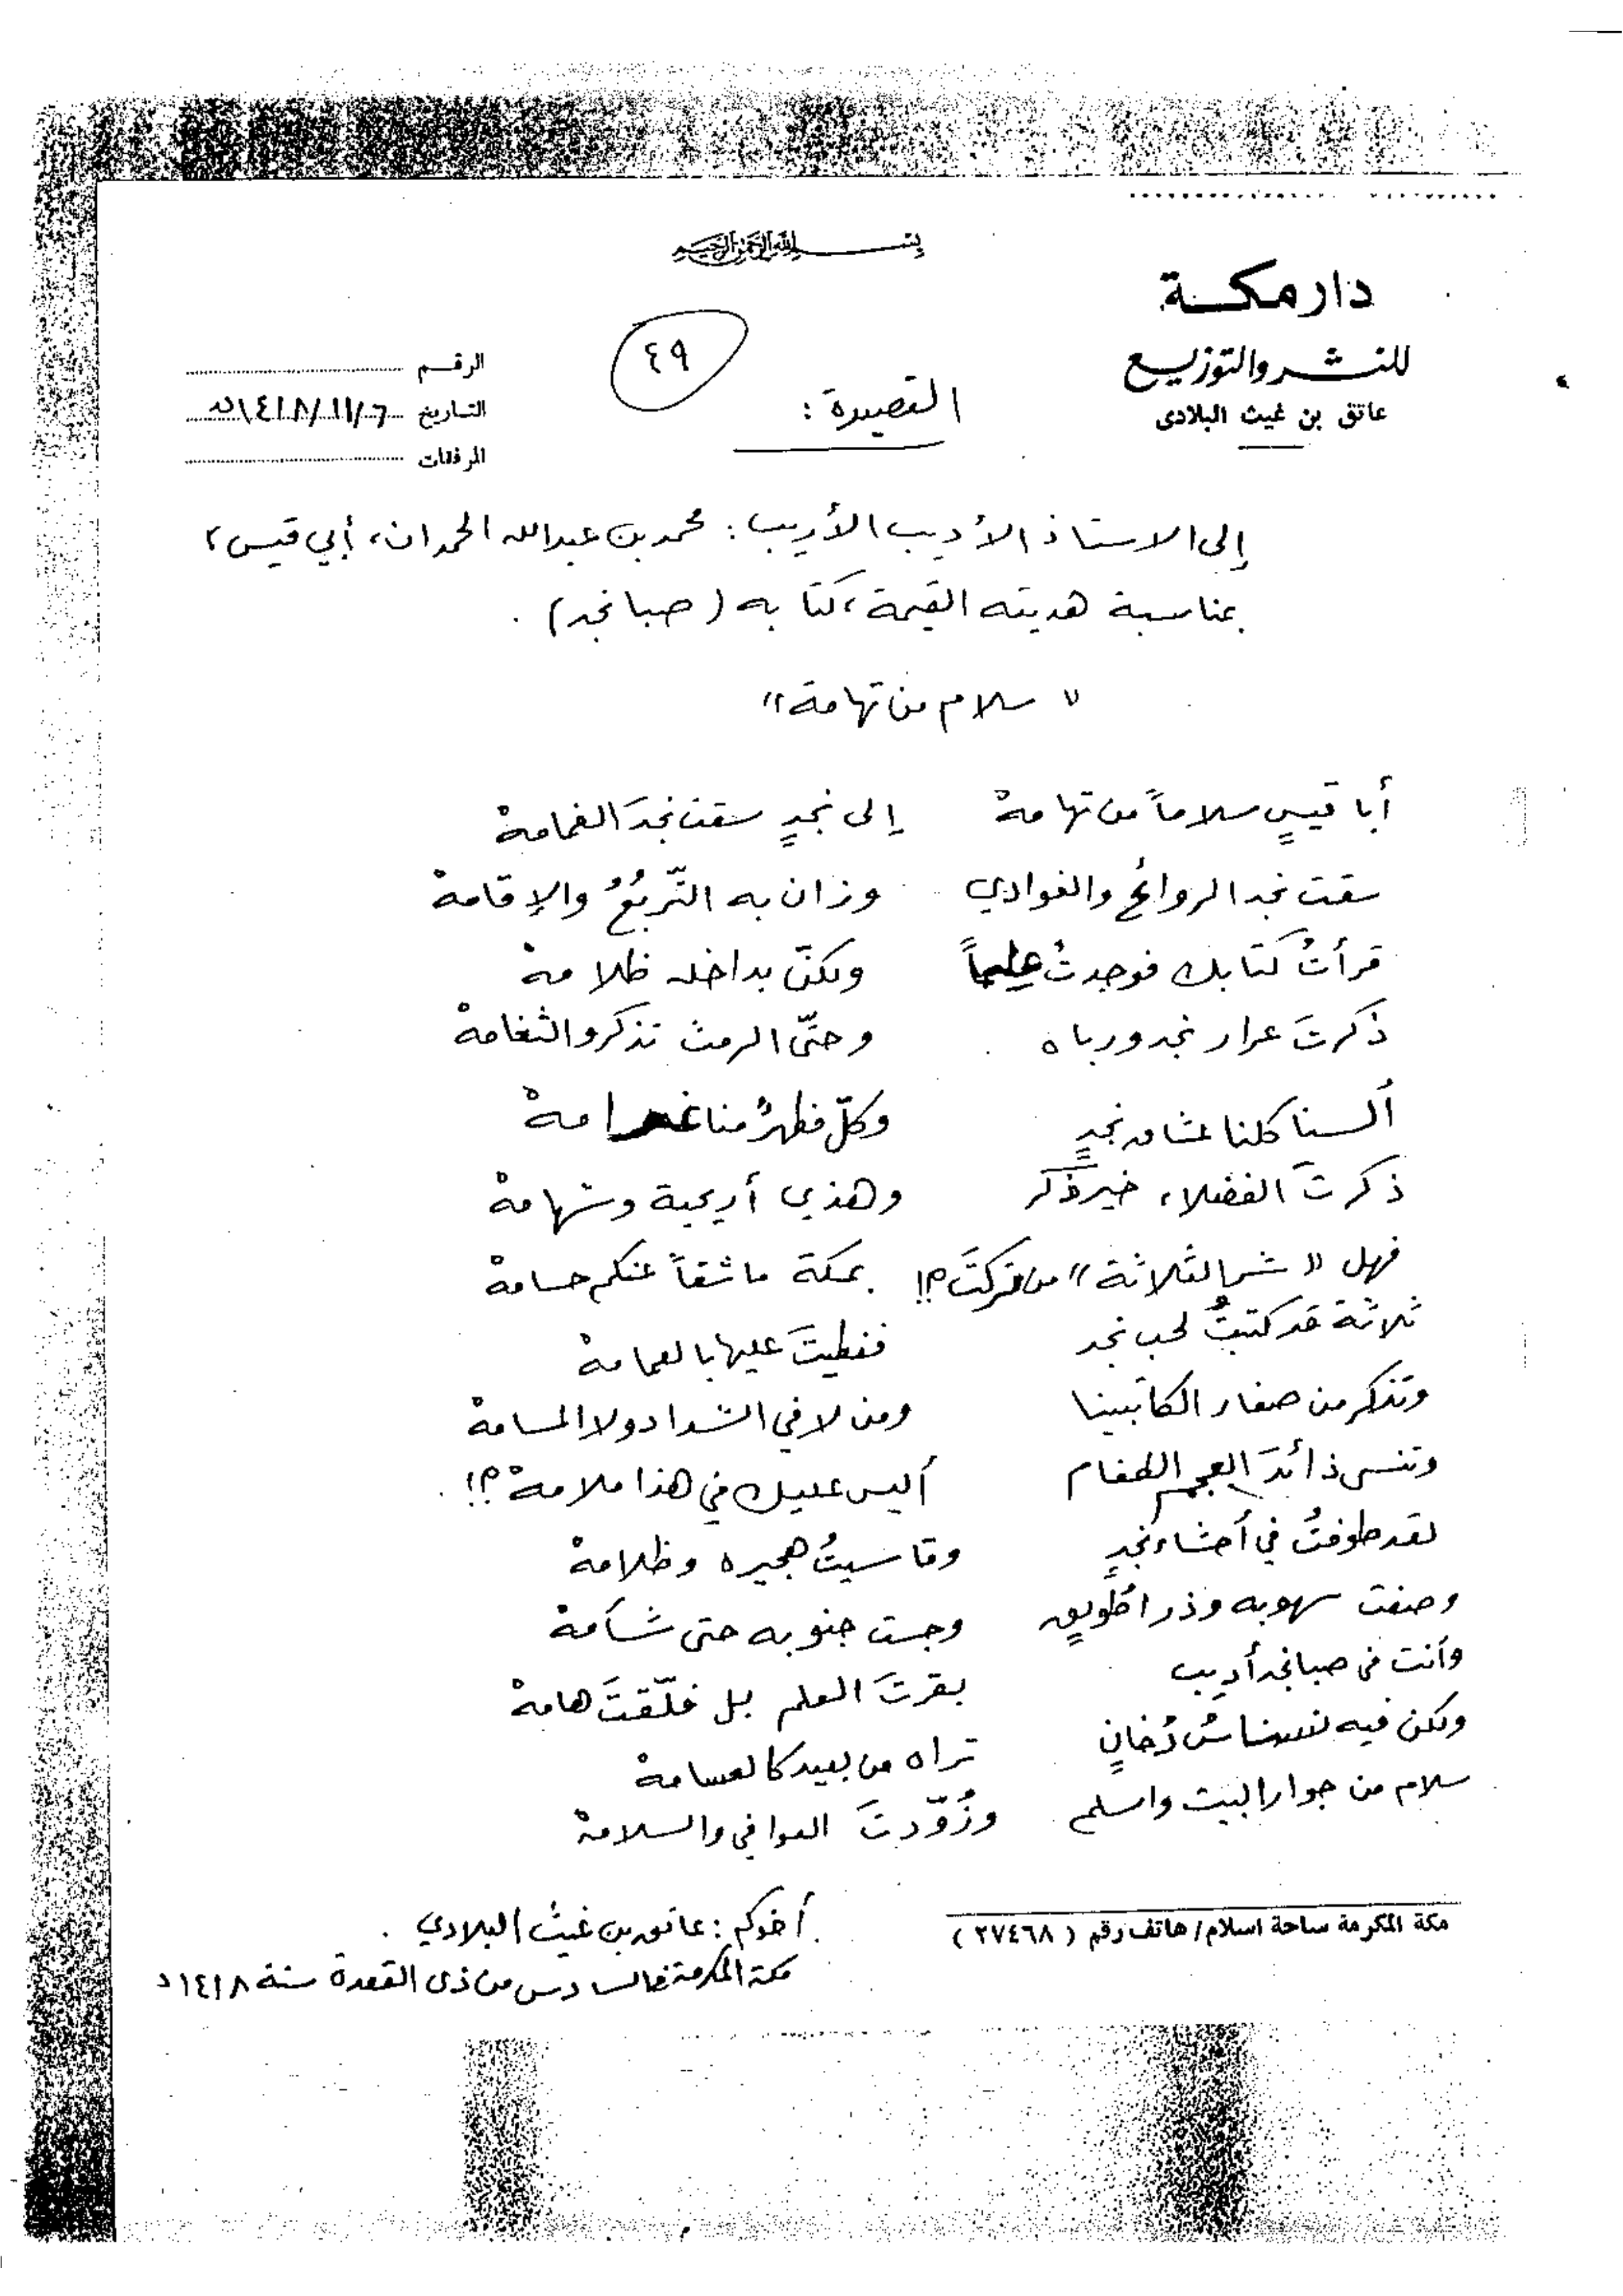 بسم الله الرحمن الرحيم
دار مكة
للنشر والتوزيع
عاتق بن غيث البلادى
الرقم
التاريخ ٦/١١/١٤١٨هـ
المرفقات
٤٩
القصيدة :
إلى الاستاذ الأديب الأريب : محمد بن عبدالله الحمدان، أبي قيس،
بمناسبة هديته القيمة، كتابه (صبا نجد) .
« سلام من تهامة »
أبا قيسٍ سلاماً من تهامهْ إلى نجدٍ سقت نجدَ الغمامهْ
سقت نجد الروائحُ والغوادي وزان به التّربُعُ والإقامهْ
قرأتُ كتابك فوجدتُ علماً ولكنّ بداخله ظلامهْ
ذكرتَ عرار نجد ورباه وحتّى الرمث تذكر والثغامهْ
ألسنا كلنا عشاق نجدٍ وكلّ مظهرٌ منا غرامهْ
ذكرتَ الفضلاء خير ذكر وهذي أريحية وشهامهْ
فهل « شر الثلاثة » من تركتَ؟!! بمكة ما شقاً عنكم حسامهْ
ثلاثة قد كتبتُ لحب نجد فغطيتَ عليها بالعمامهْ
وتذكر من صغار الكاتبينا ومن لا في الشداد ولا المسامهْ
وتنسى ذائدَ العجم الطغام أليس عليك في هذا ملامهْ؟!
لقد طوفتُ في أحشاء نجدٍ وقاسيتُ هجيره وظلامهْ
وصفت سهوبه وذرا طُويقٍ وجست جنوبه حتى شآمهْ
وأنت في صبا نجد أديب بقرتَ العلم بل فلّقتَ هامهْ
ولكن فيه نسناسُ دُخانٍ تراه من بعيد كالعسامهْ
سلام من جوار البيت واسلم وزُوّدتَ العوافي والسلامهْ
أخوكم : عاتق بن غيث البلادي .
مكة المكرمة في السادس من ذى القعدة سنة ١٤١٨هـ
مكة المكرمة ساحة اسلام/ هاتف رقم ( ٢٧٤٦٨ )